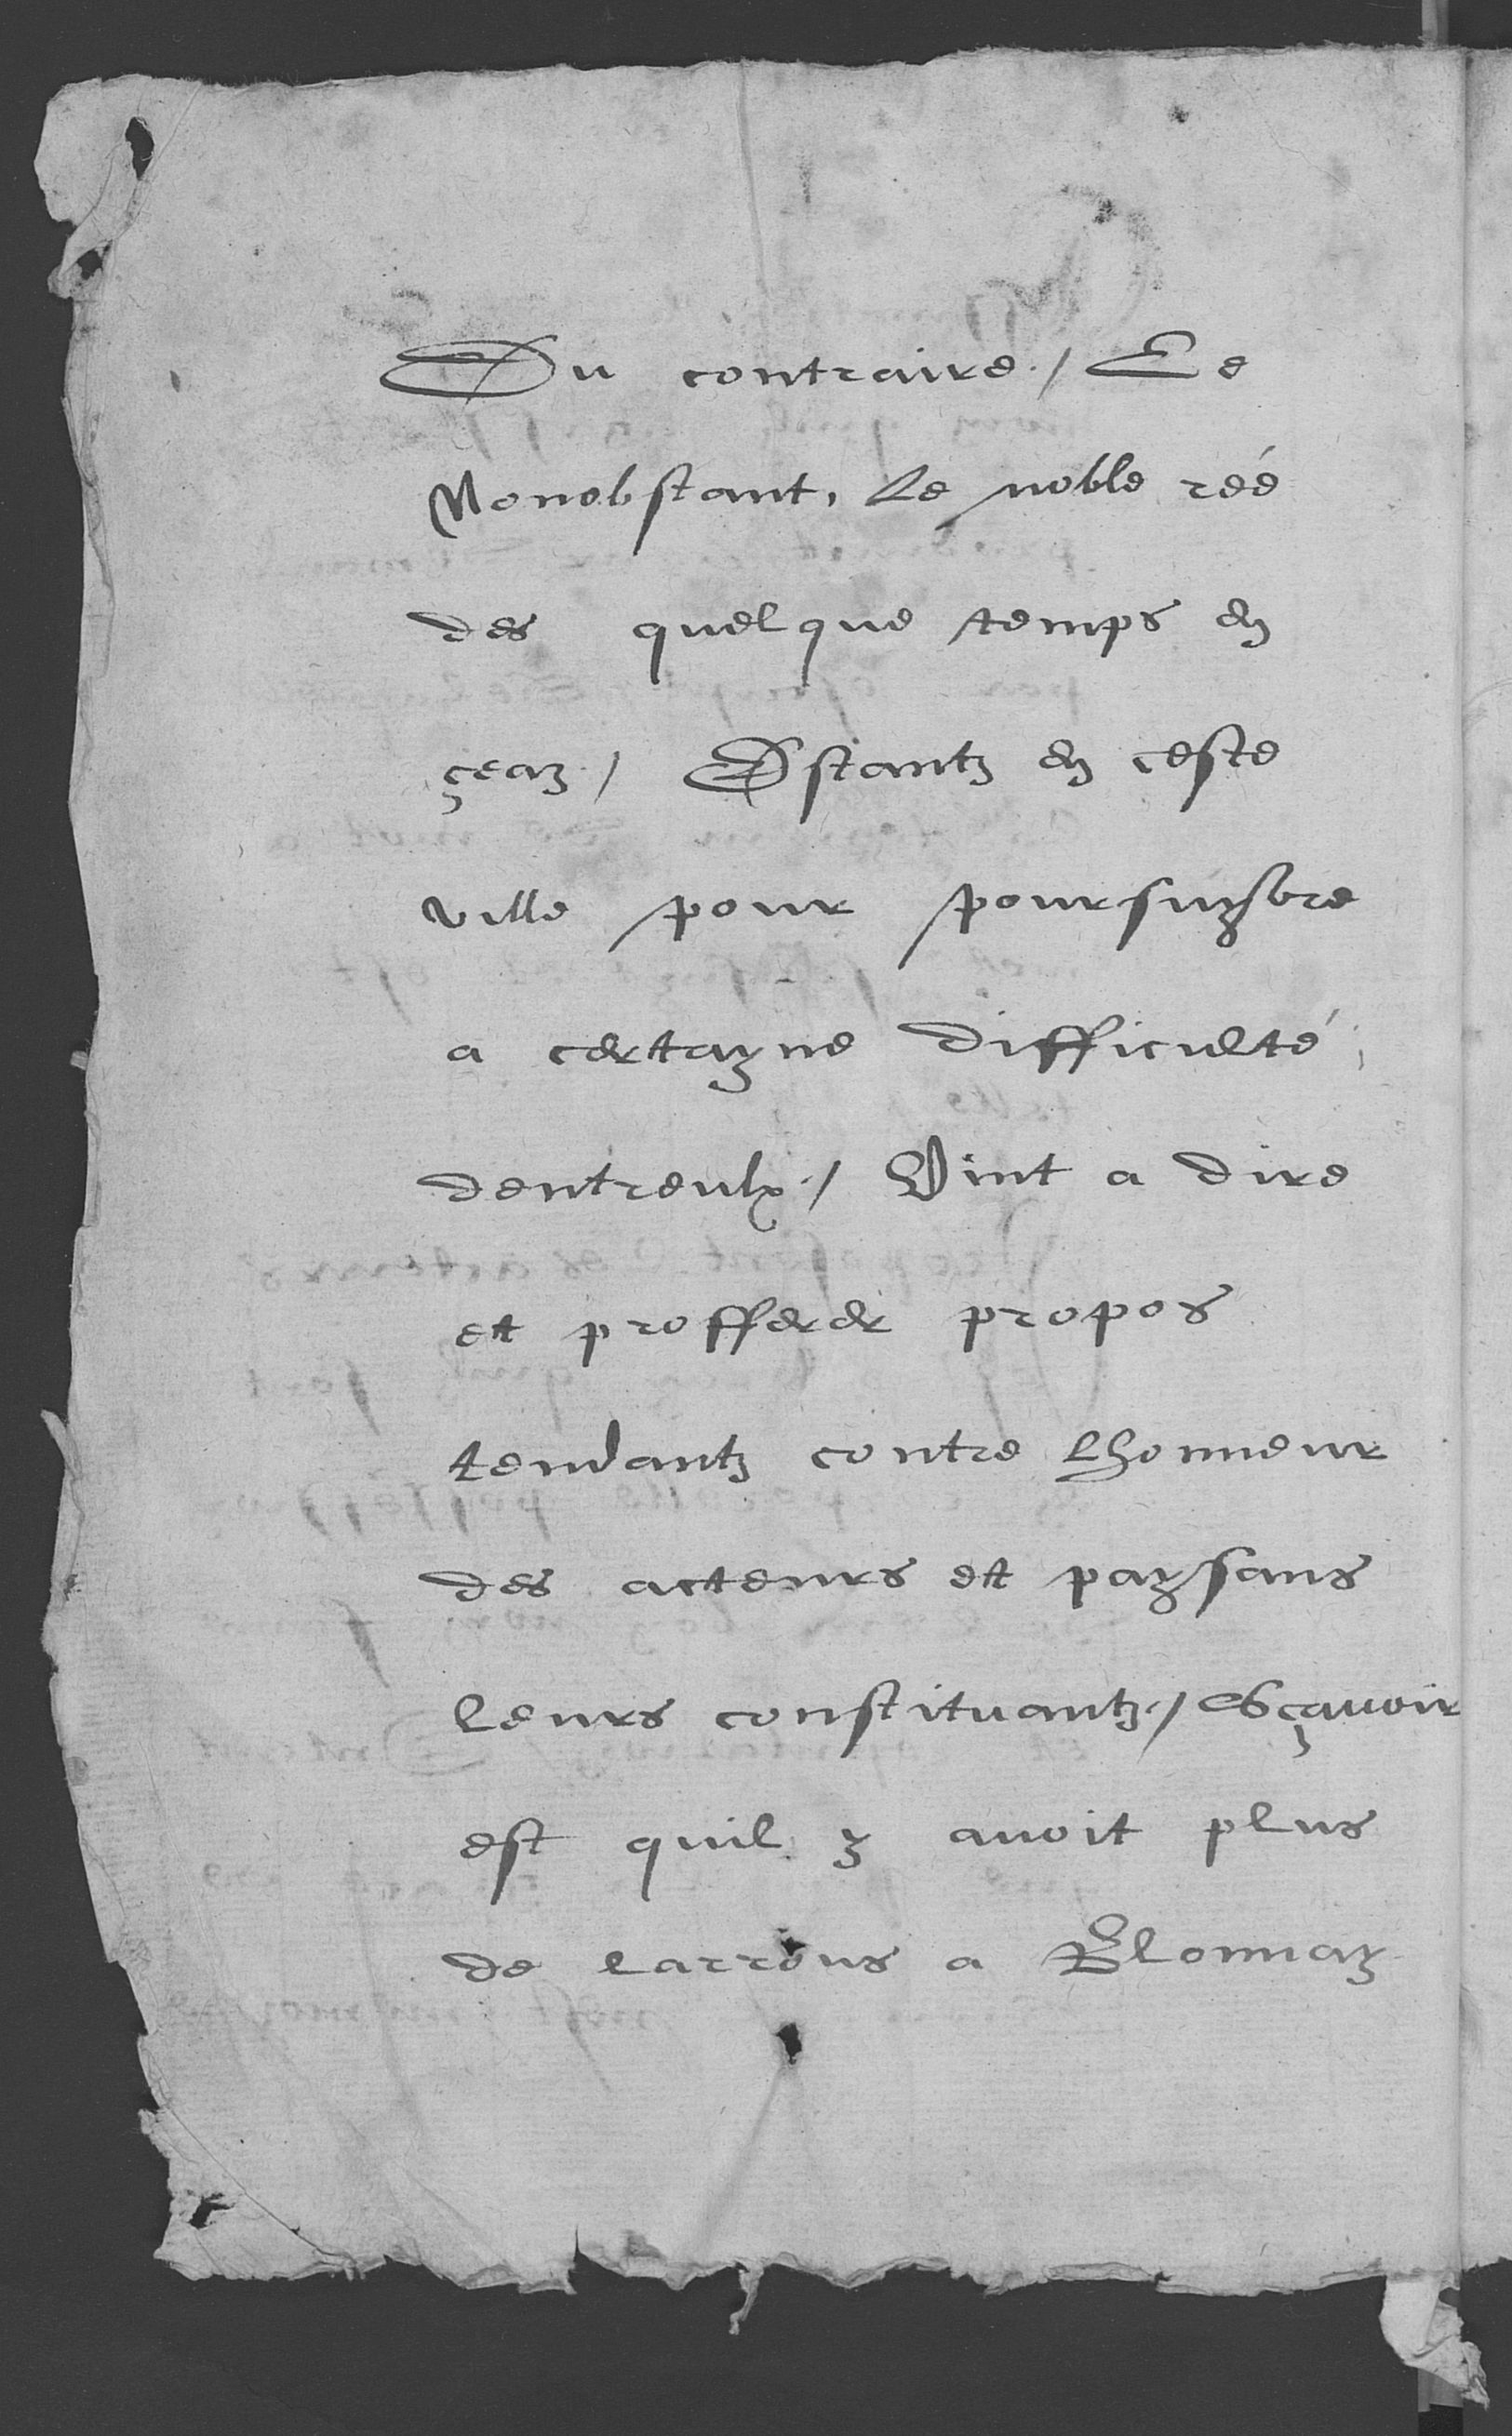 Du contraire./ Ce
Nonobstant, le noble réé
des quelque temps en
çeaz./ Estantz en ceste
ville pour poursuyvre
a certayne difficulté,
dentreulx./ Vint a dire
et profferer propos
tendantz contre lhonneur
des acteurs et paysans
leurs constituantz./ Asçavoir
est quil y avoit plus
de larrons a Blonnay